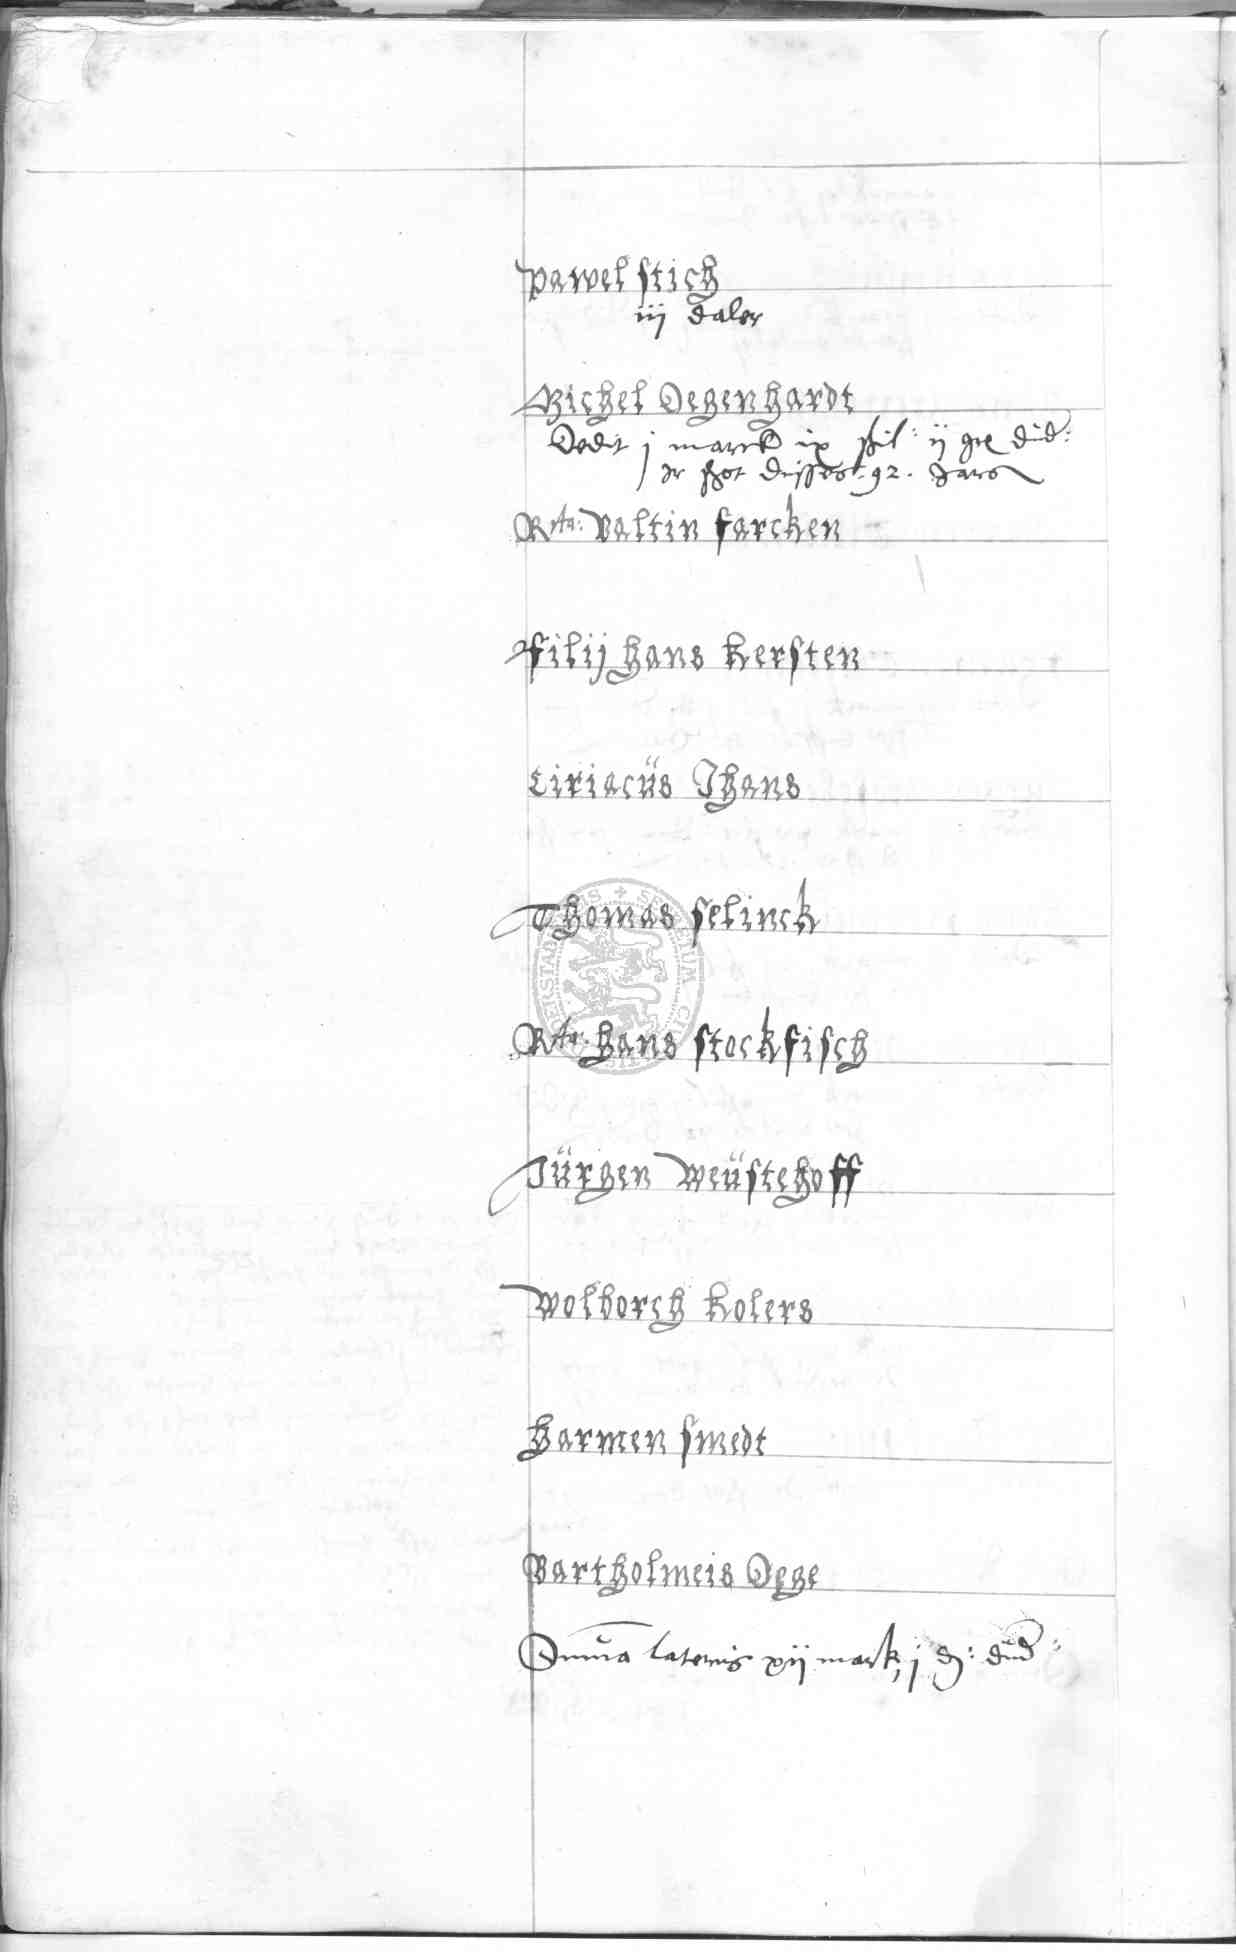 Pawel Stich
iij daler
Michel Degenhardt
Dedit j marck ix ßil: ij gr dud:
ir schot dusses .92. Jares
Rta: Valtin Farcken
Filij Hans Kersten
Ciriacüs Jhans
Thomas Selinck
Rta: Hans Stockfisch
Jürgen Weüstehoff
Wolborch Kolers
Harmen Smedt
Bartholmeis Oege
Suma lateris xij mark, j d: dud: